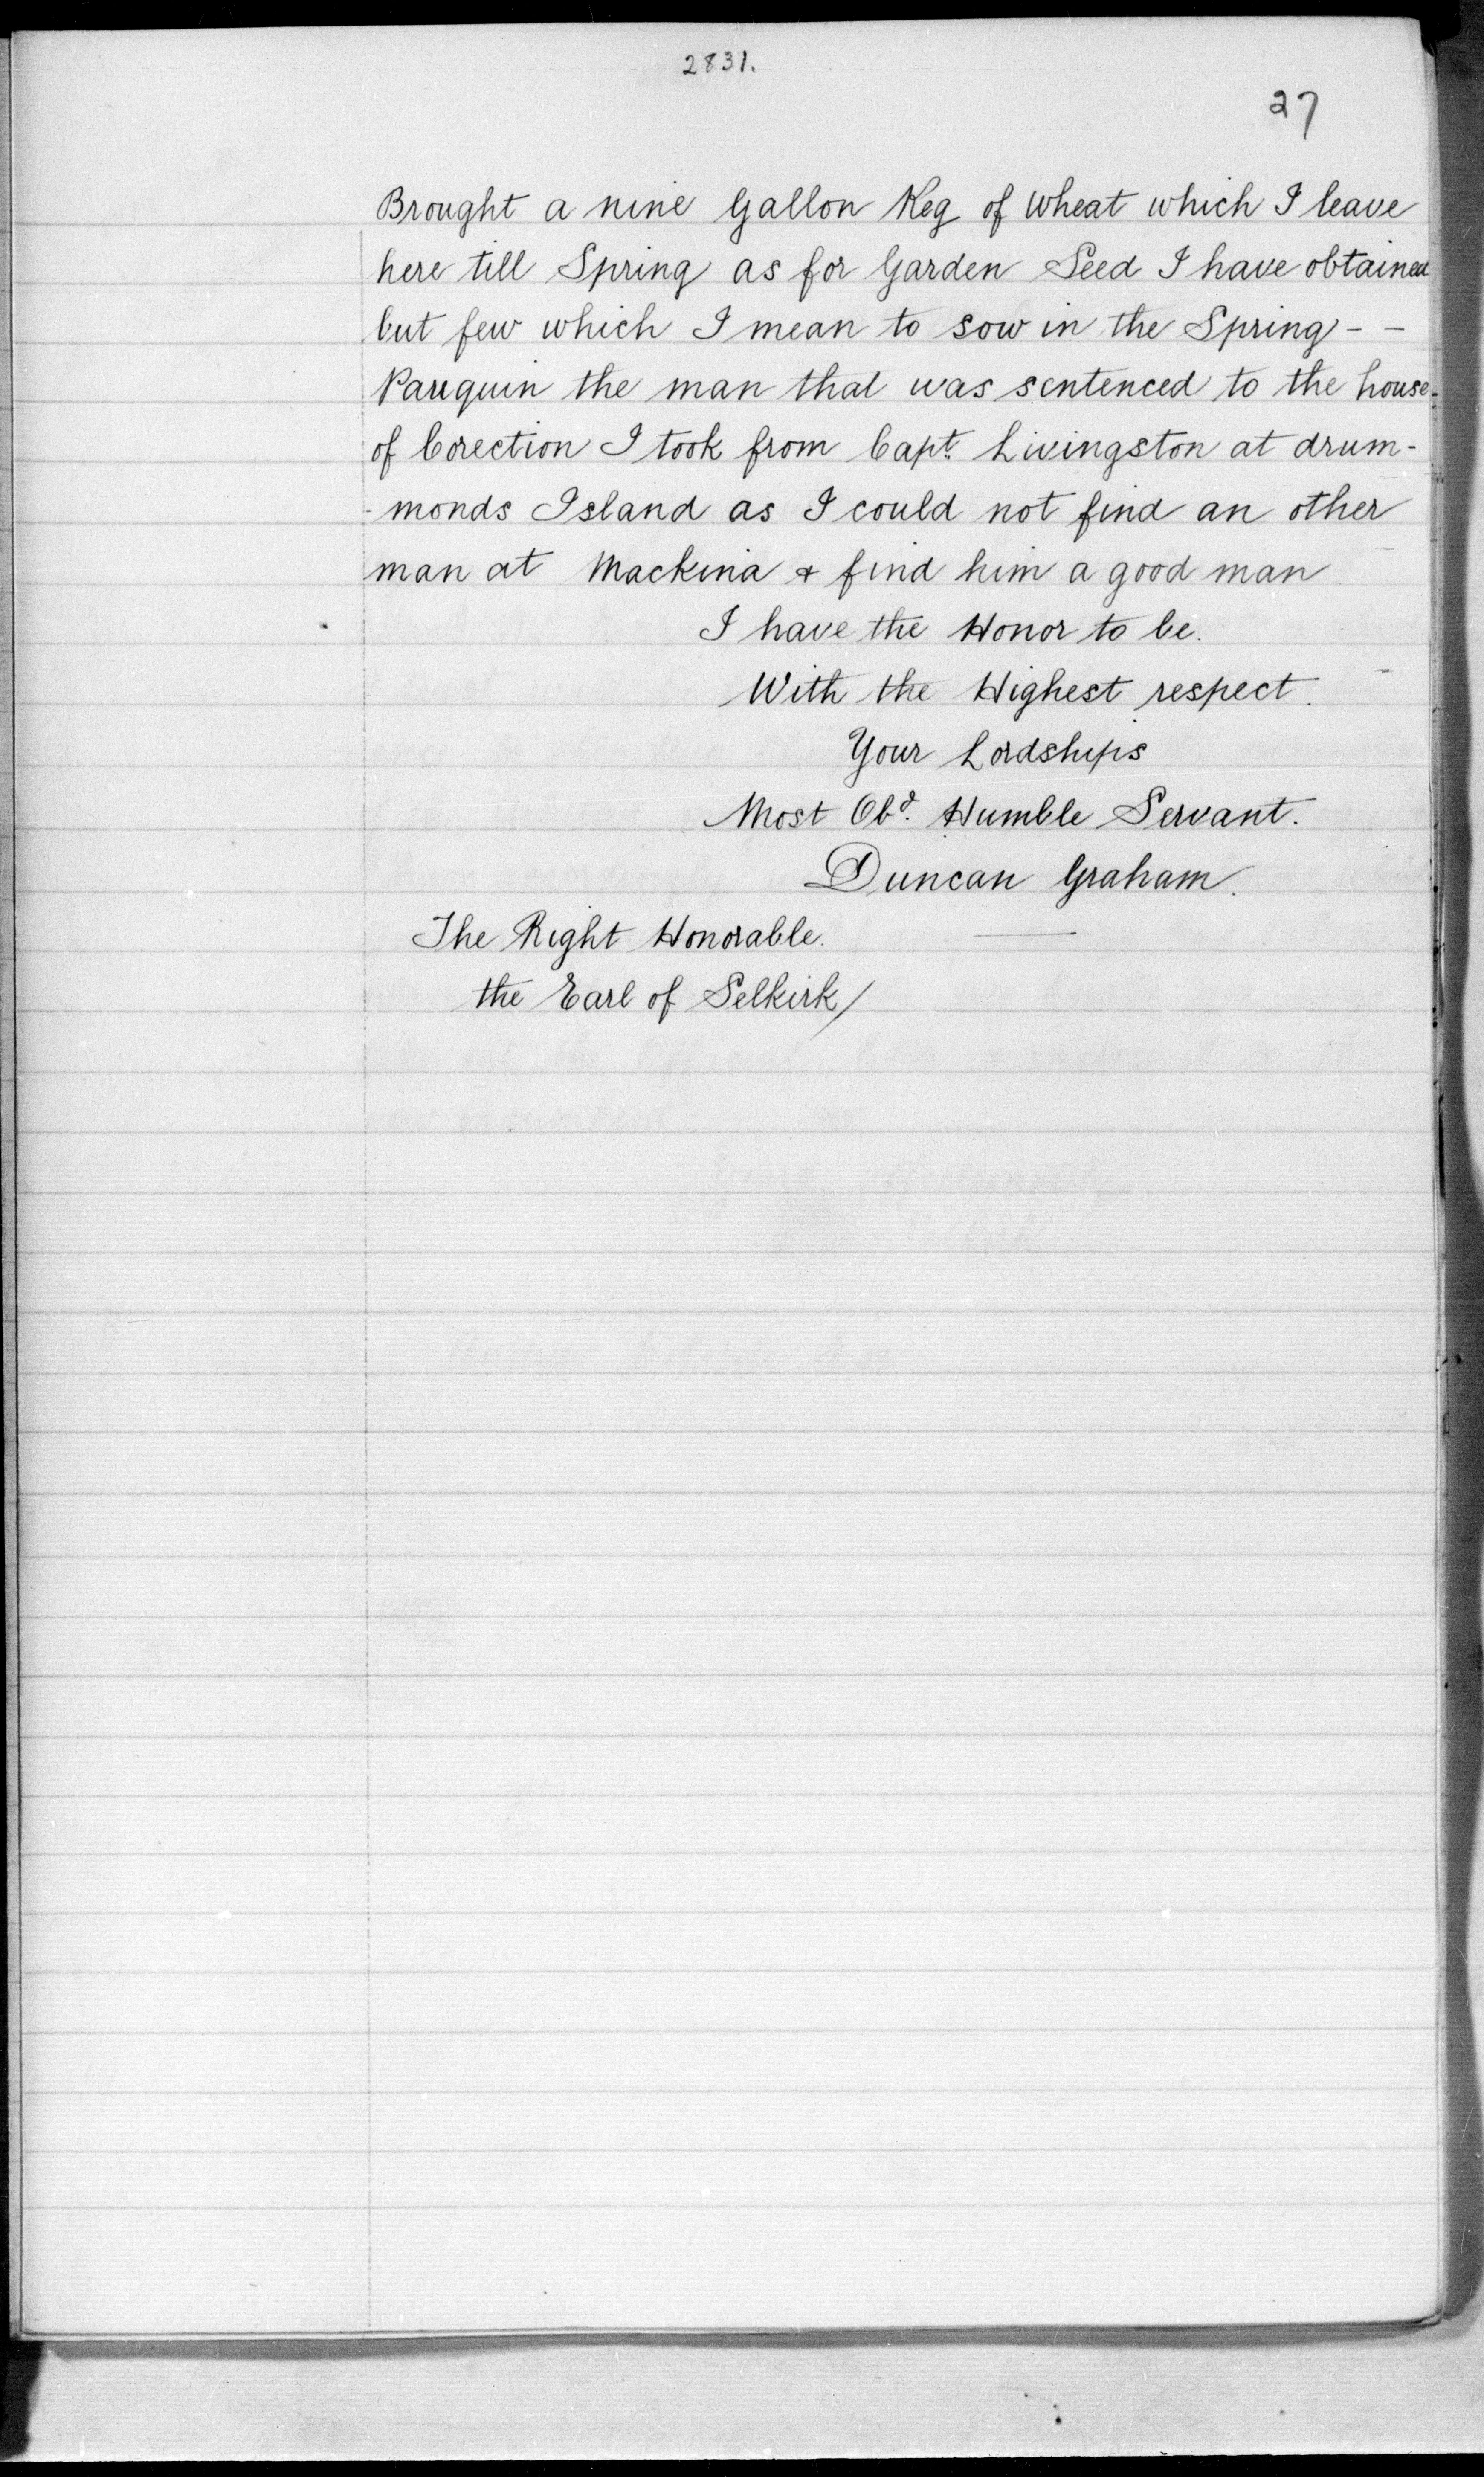 2831.
27
Brought a nine Gallon Keg of Wheat which I leave
here till Spring as for Garden Seed I have obtained
but few which I mean to sow in the Spring - -
Pauquin the man that was sentenced to the house-
of Corection I took from Capt. Livingston at drum-
-monds Island as I could not find an other
man at Mackina & find him a good man
I have the Honor to be.
With the Highest respect.
Your Lordships
Most Obd. Humble Servant.
Duncan Graham.
The Right Honorable.
the Earl of Selkirk/